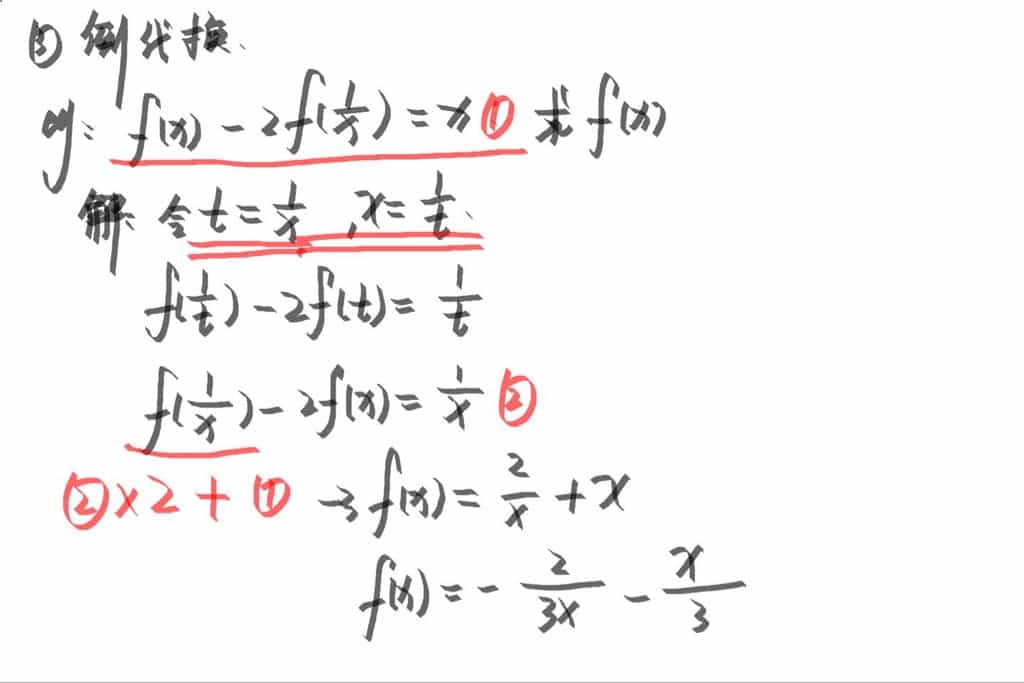 ③ 倒代换.
eg: f(x) - 2f(1/x) = x ① 求 f(x)
解: 令 t = 1/x , x = 1/t.
f(1/t) - 2f(t) = 1/t
f(1/x) - 2f(x) = 1/x ②
②×2 + ① -3f(x) = 2/x + x
f(x) = - 2/3x - x/3